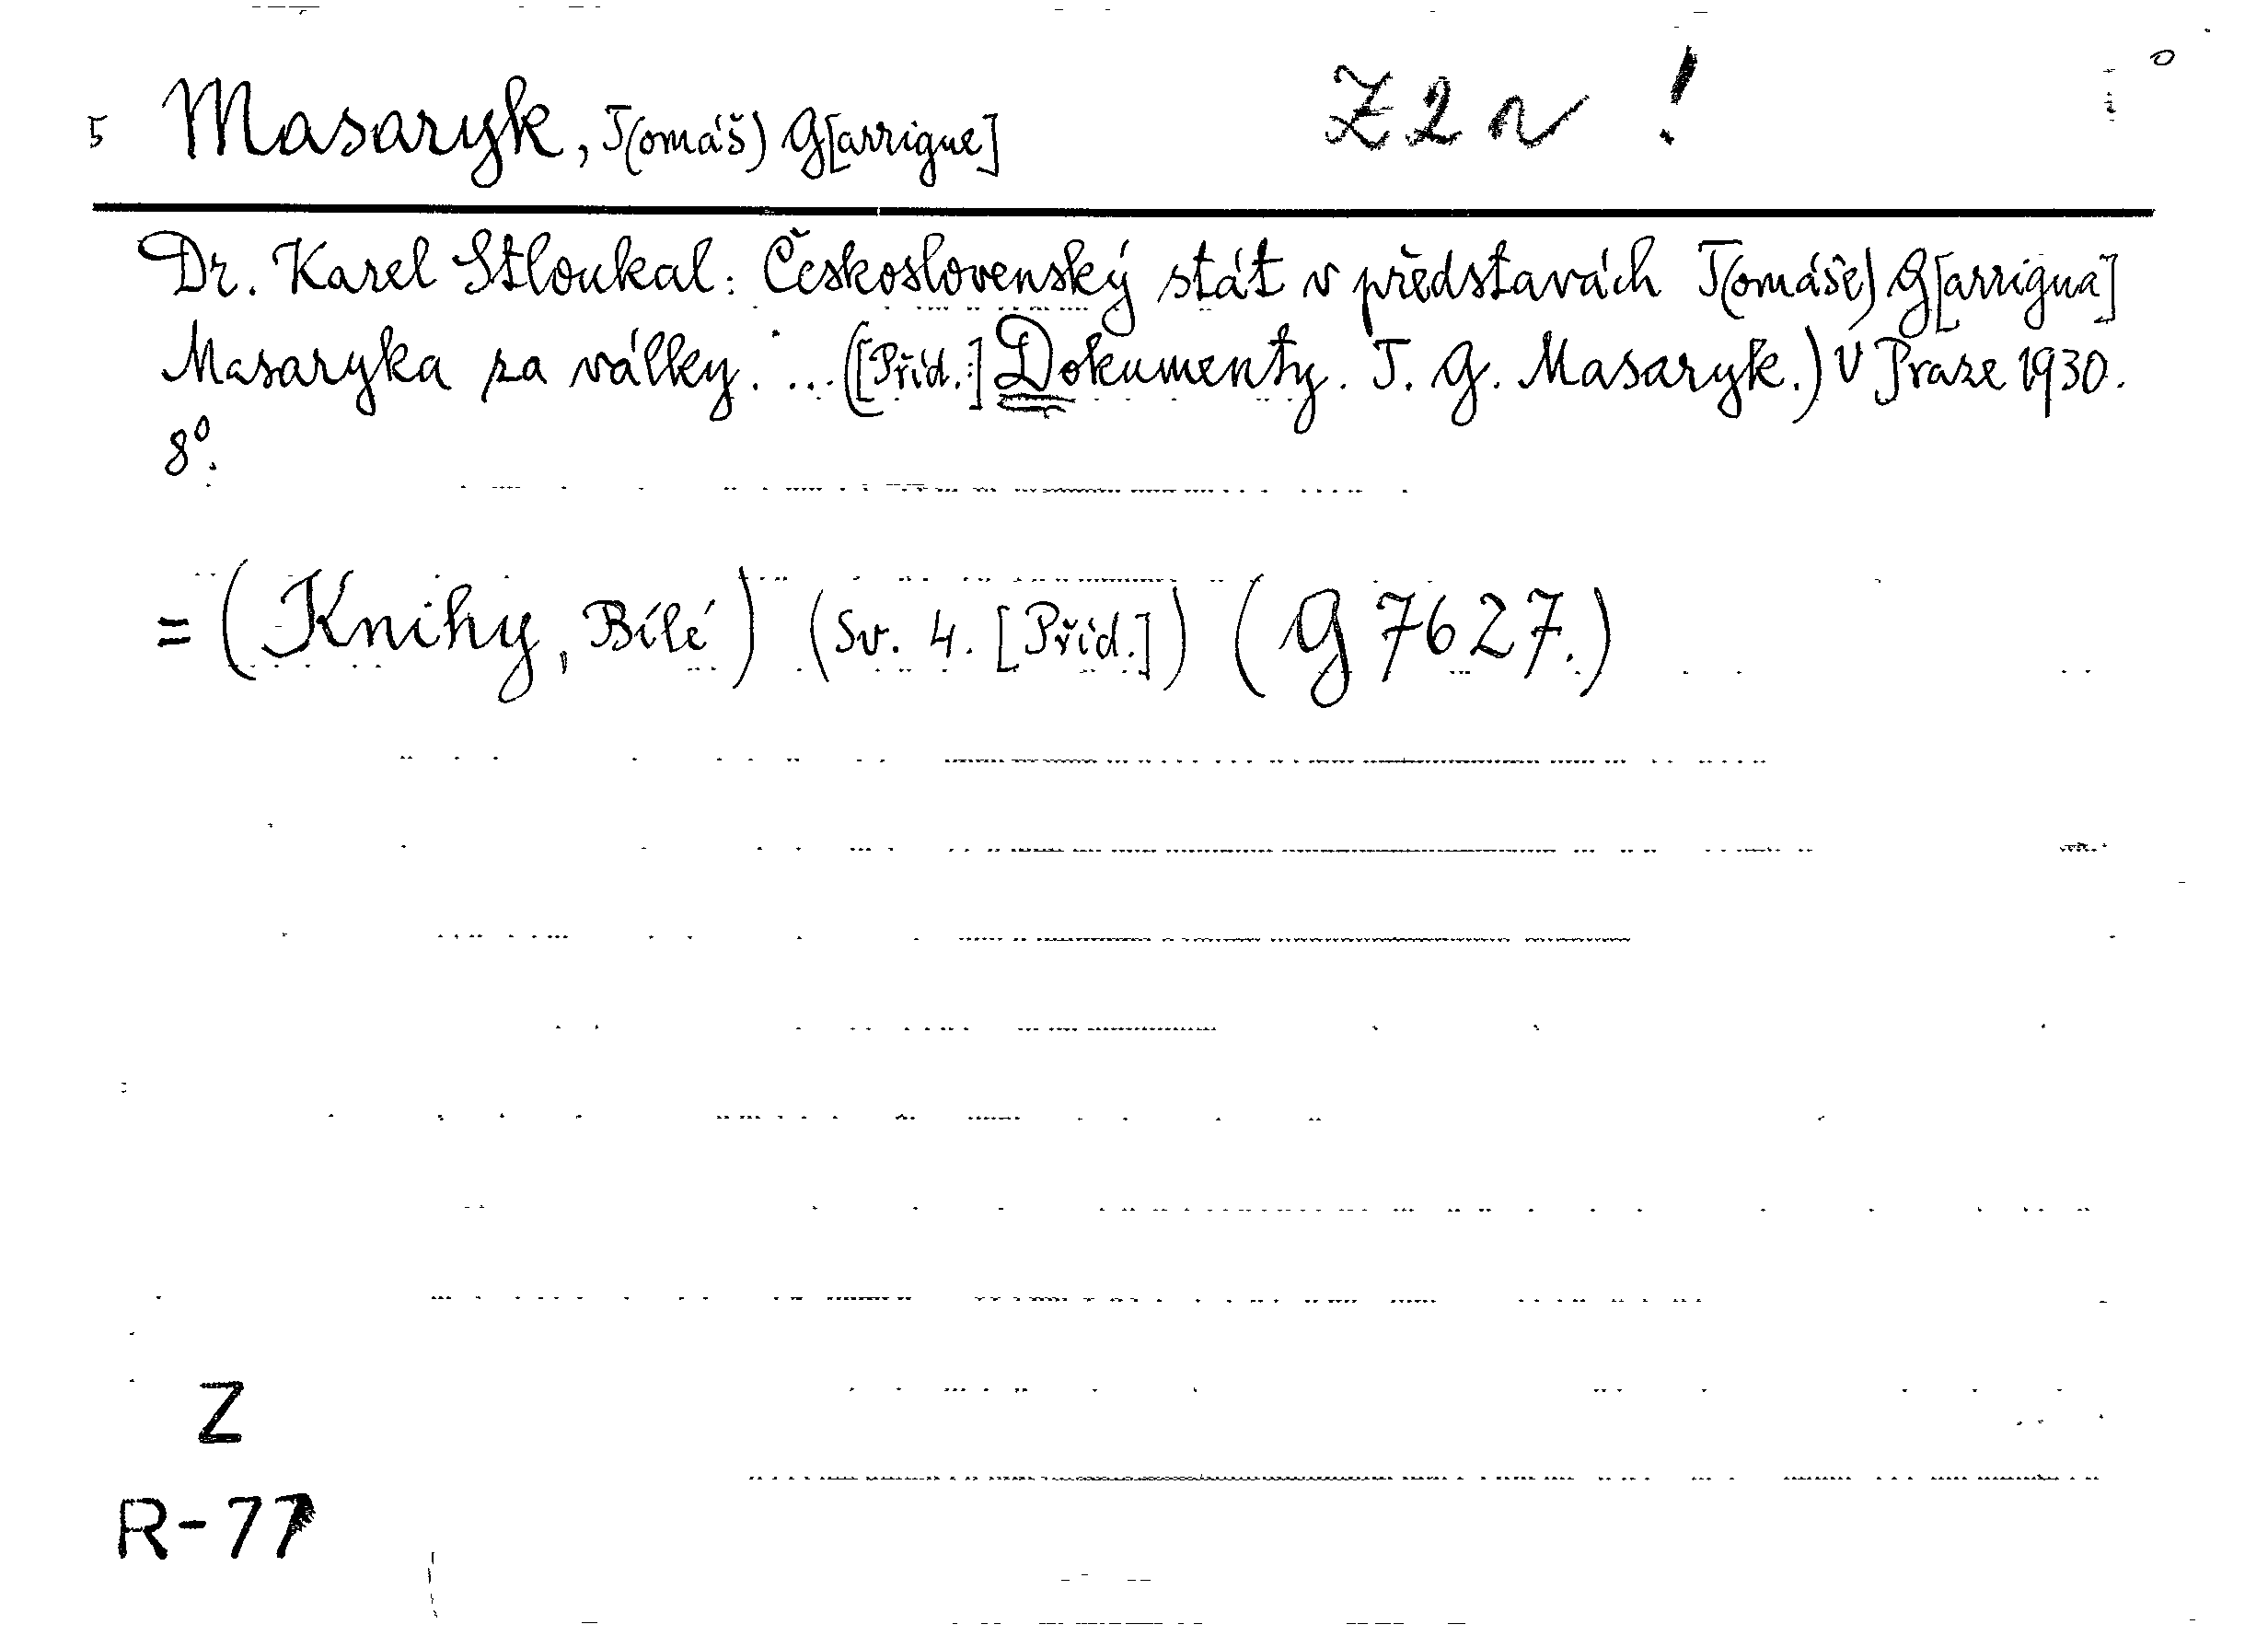 5 Masaryk, T(omáš) G[arrigue] Z 2 r !
Dr. Karel Stloukal: Československý stát v představách T(omáše) G[arrigua]
Masaryka za války. ... ([Příd.:] Dokumenty. T. G. Masaryk.) V Praze 1930.
8°.
= (Knihy, Bílé) (Sv. 4. [Příd.]) (G 7627.)
Z
R-77